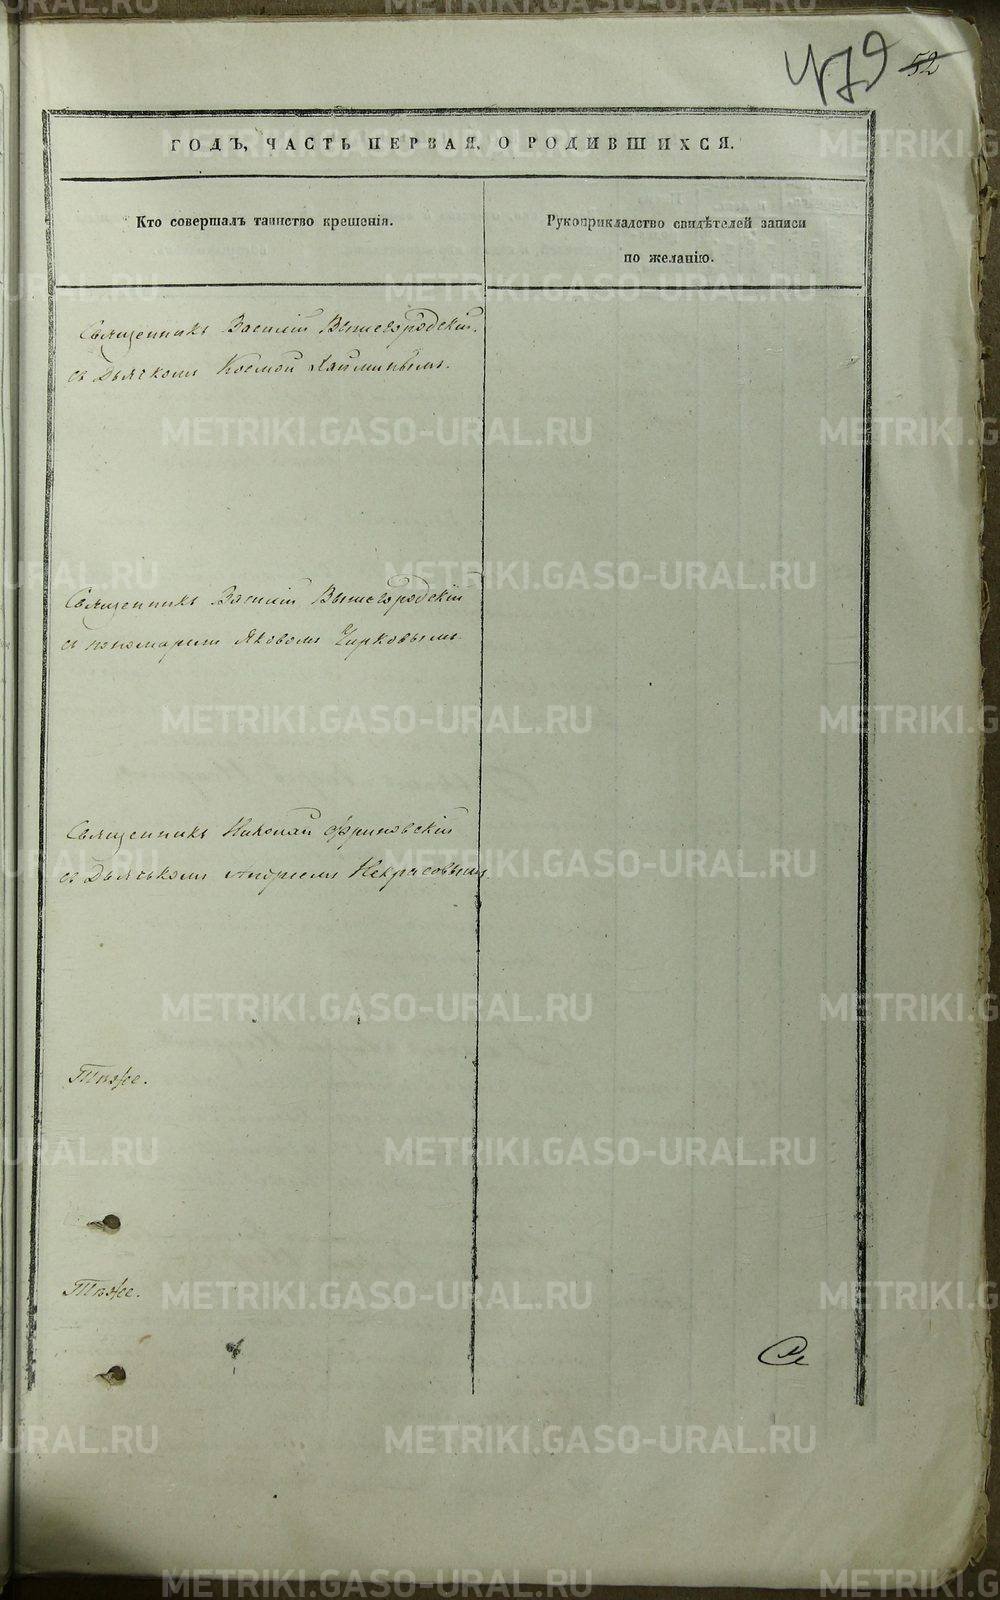 479 52
ГОДЪ, ЧАСТЬ ПЕРВАЯ, О РОДИВШИХСЯ.
Кто совершалъ таинство крещенія.
Рукоприкладство свидѣтелей записи
по желанію.
Священникъ Василій Вышегородскій.
съ Дьячкомъ Космой
Священникъ Василій Вышегородскій
съ пономаремъ Яковомъ Чирковымъ.
Священникъ Николай Фриновскій
съ Дьячькомъ Андреемъ Некрасовымъ.
Тѣже.
Тѣже.
METRIKI.GASO-URAL.RU